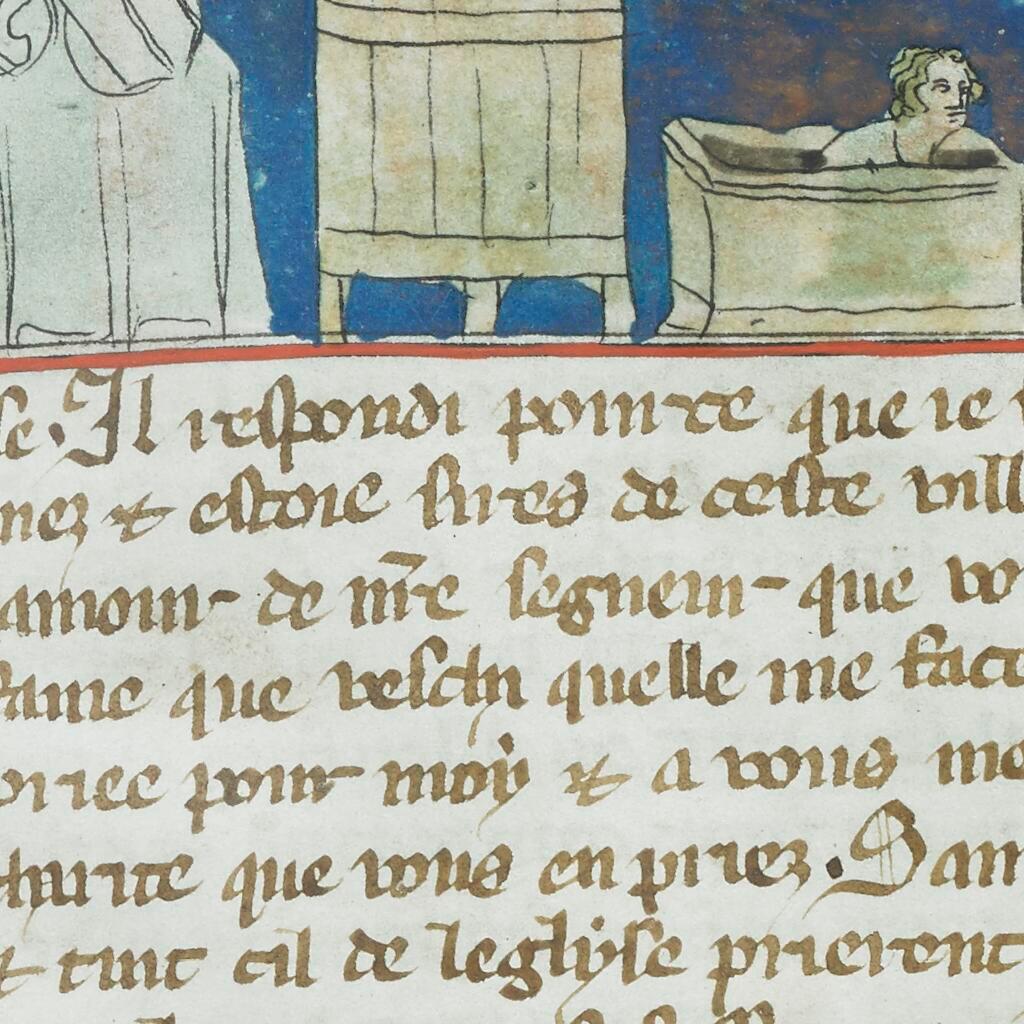 se. Il respondi pour ce que ie
nez & estoie sires de ceste vill
amour de nr̄e segneur que vo
fame que veschi quelle me face
oriee pour moy & a vous me
charite que vous en priez. Sain
& tuit cil de leglyse prierent